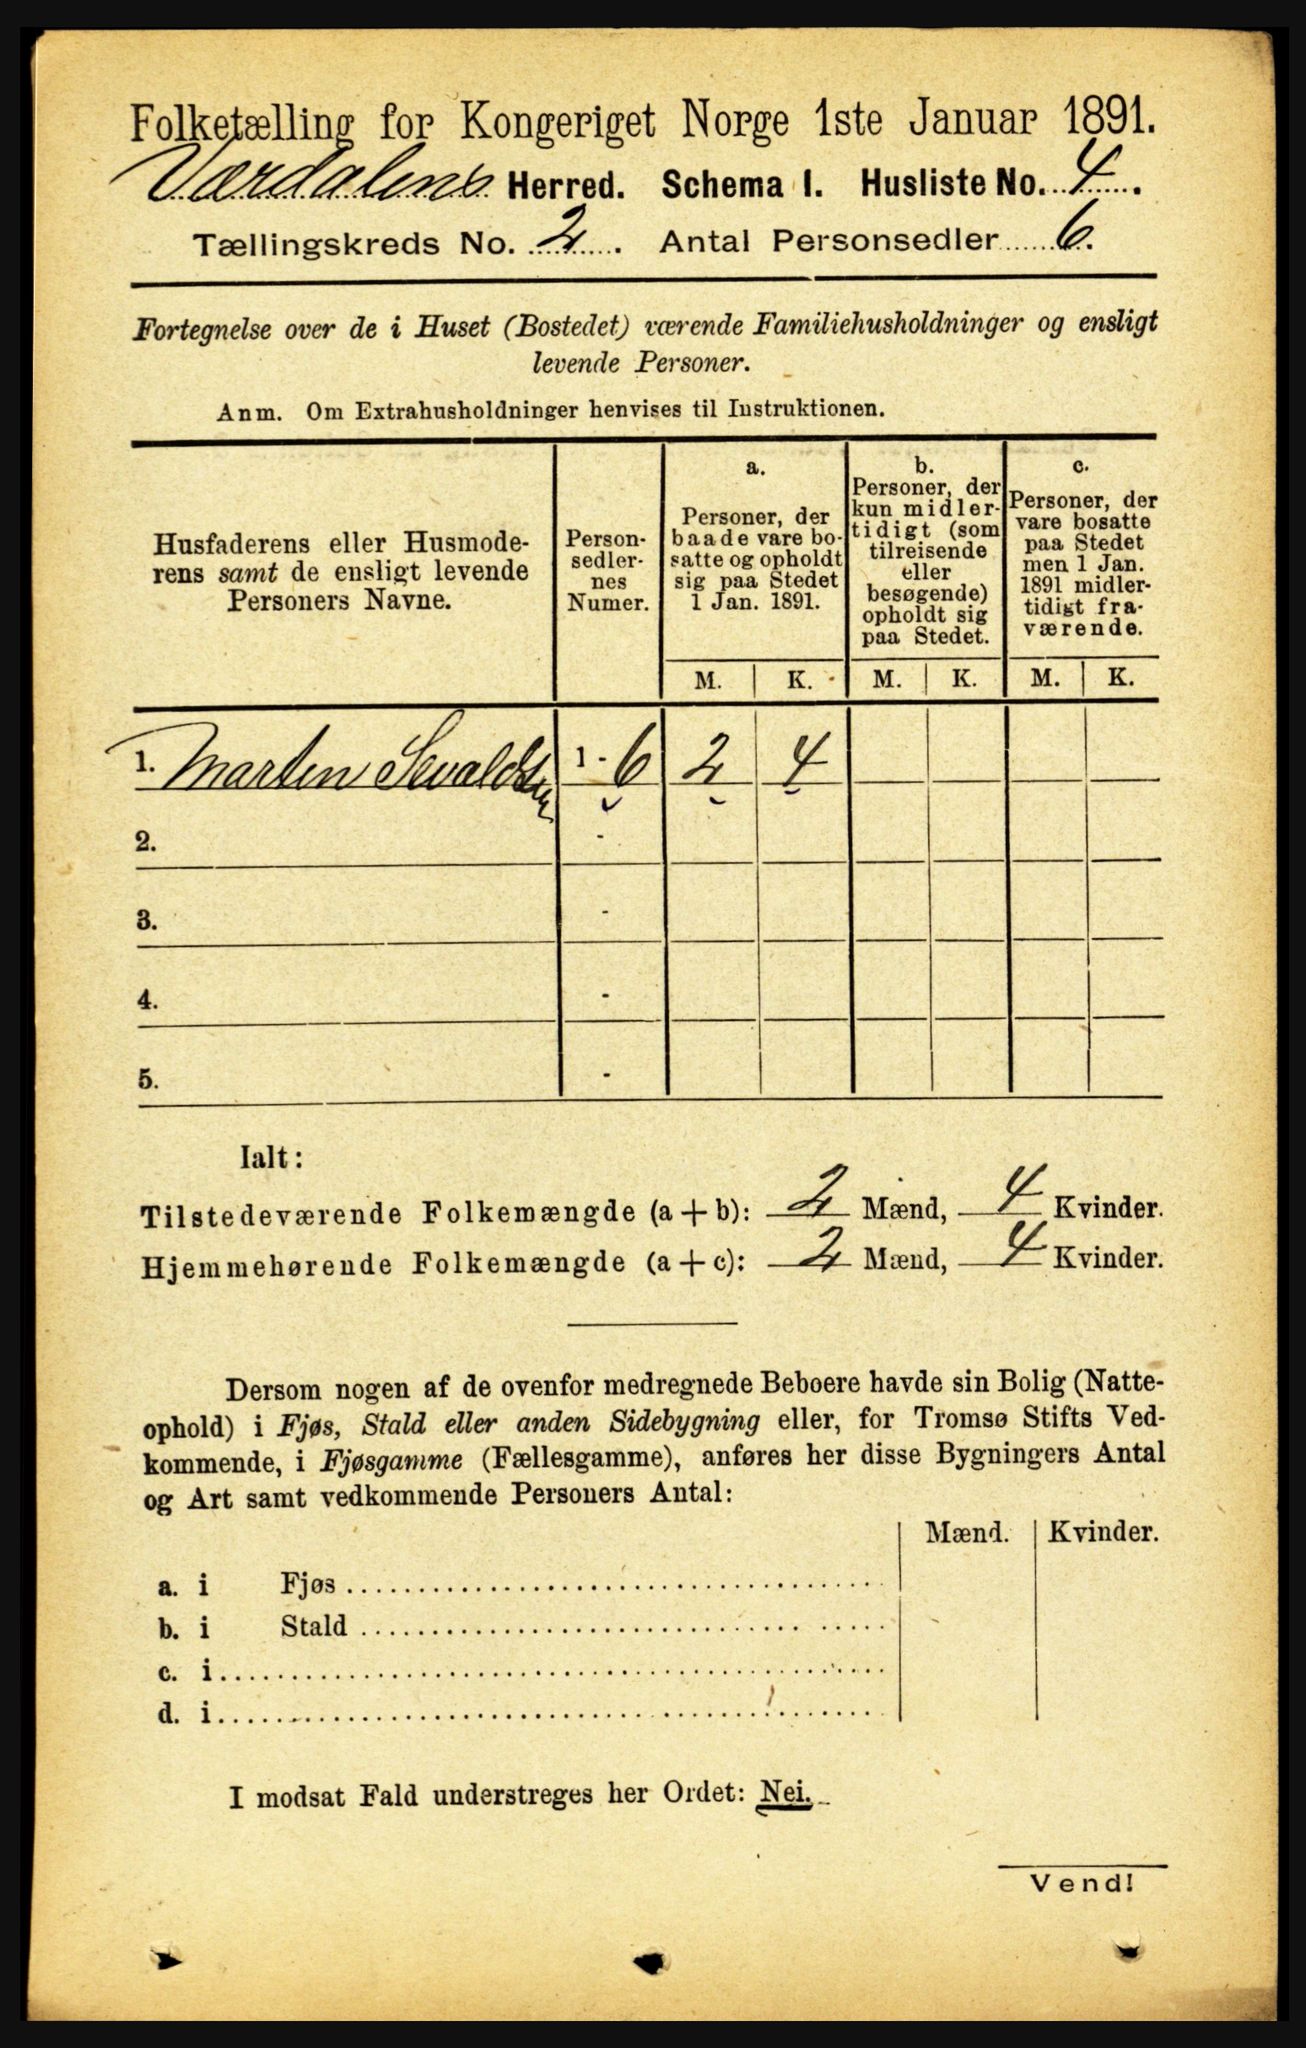 Folketælling for Kongeriget Norge 1ste Januar 1891.
Værdalens Herred. Schema 1. Husliste No. 4.
Tællingskreds No. 2. Antal Personsedler 6.
Fortegnelse over de i Huset (Bostedet) værende Familiehusholdninger og ensligt
levende Personer.
Anm. Om Extrahusholdninger henvises til Instruktionen.
Husfaderens eller Husmode-
rens samt de ensligt levende
Personers Navne.
Person-
sedler-
nes
Numer.
a.
Personer, der
baade vare bo-
satte og opholdt
sig paa Stedet
1 Jan. 1891.
b.
Personer, der
kun midler-
tidigt (som
tilreisende
eller
besøgende)
opholdt sig
paa Stedet.
c.
Personer, der
vare bosatte
paa Stedet
men 1 Jan.
1891 midler-
tidigt fra-
værende.
M. K. M. K. M. K.
1. Marten Sevaldsen 1 - 6 2 4
2. -
3. -
4. -
5. -
Ialt:
Tilstedeværende Folkemængde (a + b): 2 Mænd, 4 Kvinder.
Hjemmehørende Folkemængde (a + c): 2 Mænd, 4 Kvinder.
Dersom nogen af de ovenfor medregnede Beboere havde sin Bolig (Natte-
ophold) i Fjøs, Stald eller anden Sidebygning eller, for Tromsø Stifts Ved-
kommende, i Fjøsgamme (Fællesgamme), anføres her disse Bygningers Antal
og Art samt vedkommende Personers Antal:
Mænd. Kvinder.
a. i Fjøs
b. i Stald
c. i
d. i
I modsat Fald understreges her Ordet: Nei.
Vend!